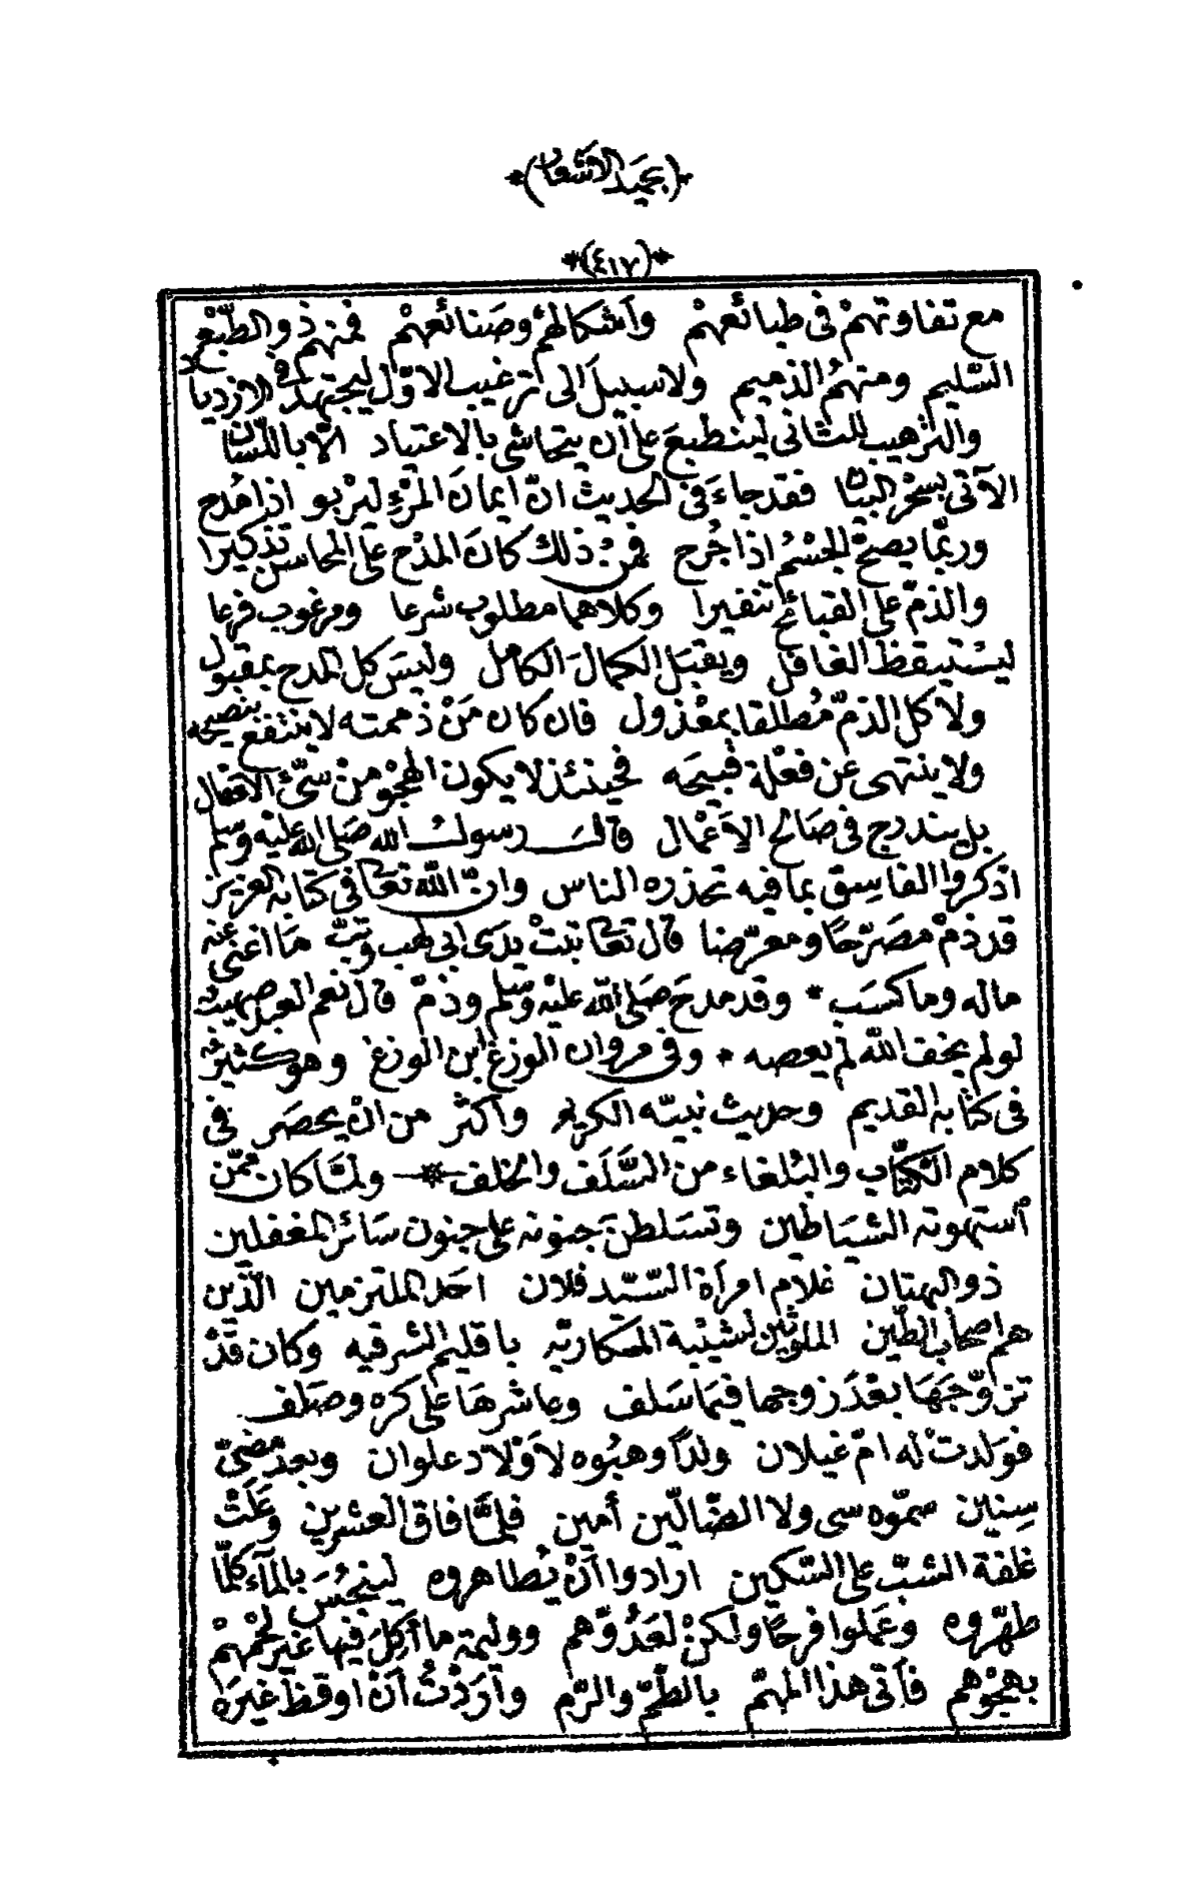 ﴿بحميد الاشعار﴾
﴿٤١٧﴾
مع تفاوتهمْ فى طبائعهمْ وأشكالهمْ وصَنائعهمْ فمنهم ذو الطّبْع
السّليم ومنهمُ الذميم ولا سبيلَ الى ترغيب الاوّل ليجتهد فى الازدياد
والترهيب للثانى لينطبعَ على أن يتحاشى بالاعتياد الّا باللّسان
الآتى بسحْر البيان فقد جاءَ فى الحديث انّ ايمانَ المرْءِ ليربو اذا مُدح
وربّما يصحّ الجسْمُ اذا جُرح فمنْ ذلك كانَ المدْح على المحاسن تذكيرا
والذمّ على القبائح تنفيرا وكلاهما مطلوب شرعا ومرغوب فرعا
ليسْتيقظ الغافل ويقبَل الكمالَ الكامل وليسَ كل المدح بمقبول
ولا كل الذمّ مُطلقا بمعْذول فان كان مَنْ ذممته لا ينتفع بنصيحه
ولا ينتهى عن فعْلة قبيحَه فحينئذ لا يكون الهجْو منْ سئّ الافعال
بل يندرج فى صَالح الاَعْمال قالَ رسولُ الله صَلى الله عليْه وسَلم
اذكروا الفاسِق بما فيه تحذره الناس وانّ اللّه تعالى فى كتابه العزيز
قد ذمْ مصَرّحًا ومعرّضا قال تعالى تبتْ يدَى ابى لهب وتبّ مَا اغنى عنه
ماله وما كسَب * وقد مدحَ صَلى اللّه عليْه وسَلم وذمّ قال نعم العبد صهيب
لو لم يخف اللّه لم يعصه * وفى مروان الوزغ ابن الوزغ وهو كثيرٌ
فى كتابه القديم وحديث نبيّه الكريم وأكثر من انْ يحصَر فى
كلام الكتّاب والبُلغاء من السَّلَف والخلف * ولمّا كان ممّن
أستهوته الشيَاطين وتسَلطنَ جنونه على جنون سَائر المغفلين
ذو البهتان غلام امرأة السّيّد فلان احَد الملتزمين الّذين
هم اصحاب الطّين الملوثين لشيبة المكاريّه باقليم الشرقيه وكان قَدْ
تزوّجَهَا بعْدَ زوجها فيمَا سَلف وعاشرهَا على كره وصَلف
فولدتْ له امّ غيلان ولدًا وهبُوه لاَوْلاد علوان وبعد مضىّ
سِنين سمّوه سى ولا الضّالّين أمين فلمَّا فاق العشرين وعَلَتْ
غلفة الشبّ على السّكين ارادوا أنْ يُطاهروه لينجُسَ بالمآء كلّما
طهّروه وعَملوا فرحًا ولكنْ لعَدُوّهم ووليمة ما أكِلَ فيها غير لحْمهمْ
بهجْوهم فأتى هذا المهمّ بالطّمّ والرّم وأرَدْتُ أنْ اوقظ غيرَه